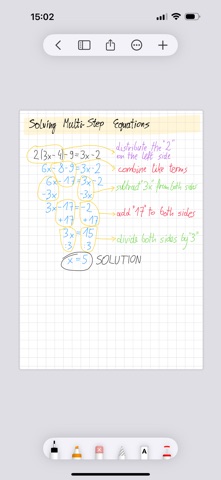 15:02
Solving Multi-Step Equations
2(3x-4)-9=3x-2 distribute the "2" on the left side
6x-8-9=3x-2 combine like terms
6x-17=3x-2 subtract "3x" from both sides
-3x -3x
3x-17=-2 add "17" to both sides
+17 +17
3x=15 divide both sides by "3"
3 3
x=5 SOLUTION
A